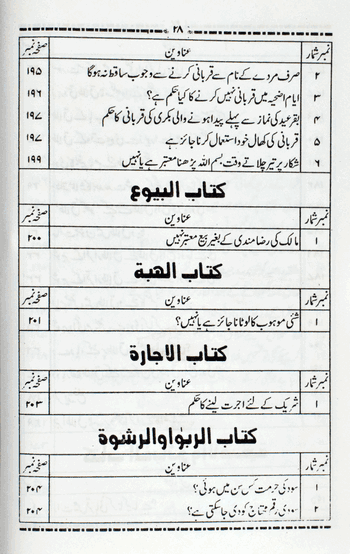 ۲۸
نمبر شمار عناوین صفحہ نمبر
۲ صرف مردے کے نام سے قربانی کرنے سے وجوب ساقط نہ ہوگا ۱۹۵
۳ ایام اضحیہ میں قربانی نہیں کرنے کا کیا حکم ہے؟ ۱۹۶
۴ بقرعید کی نماز سے پہلے پیدا ہونے والی بکری کی قربانی کا حکم ۱۹۷
۵ قربانی کی کھال خود استعمال کرنا جائز ہے ۱۹۷
۶ شکار پر تیر چلاتے وقت بسم اللہ پڑھنا معتبر ہے یا نہیں ۱۹۹
کتاب البیوع
نمبر شمار عناوین صفحہ نمبر
۱ مالک کی رضامندی کے بغیر بیع معتبر نہیں ۲۰۰
کتاب الهبة
نمبر شمار عناوین صفحہ نمبر
۱ شئی موہوب کا لوٹانا جائز ہے یا نہیں؟ ۲۰۱
کتاب الاجارة
نمبر شمار عناوین صفحہ نمبر
۱ شریک کے لئے اجرت لینے کا حکم ۲۰۳
کتاب الربوٰا والرشوة
نمبر شمار عناوین صفحہ نمبر
۱ سود کی حرمت کس سن میں ہوئی؟ ۲۰۴
۲ سودی رقم محتاج کو دی جاسکتی ہے؟ ۲۰۴